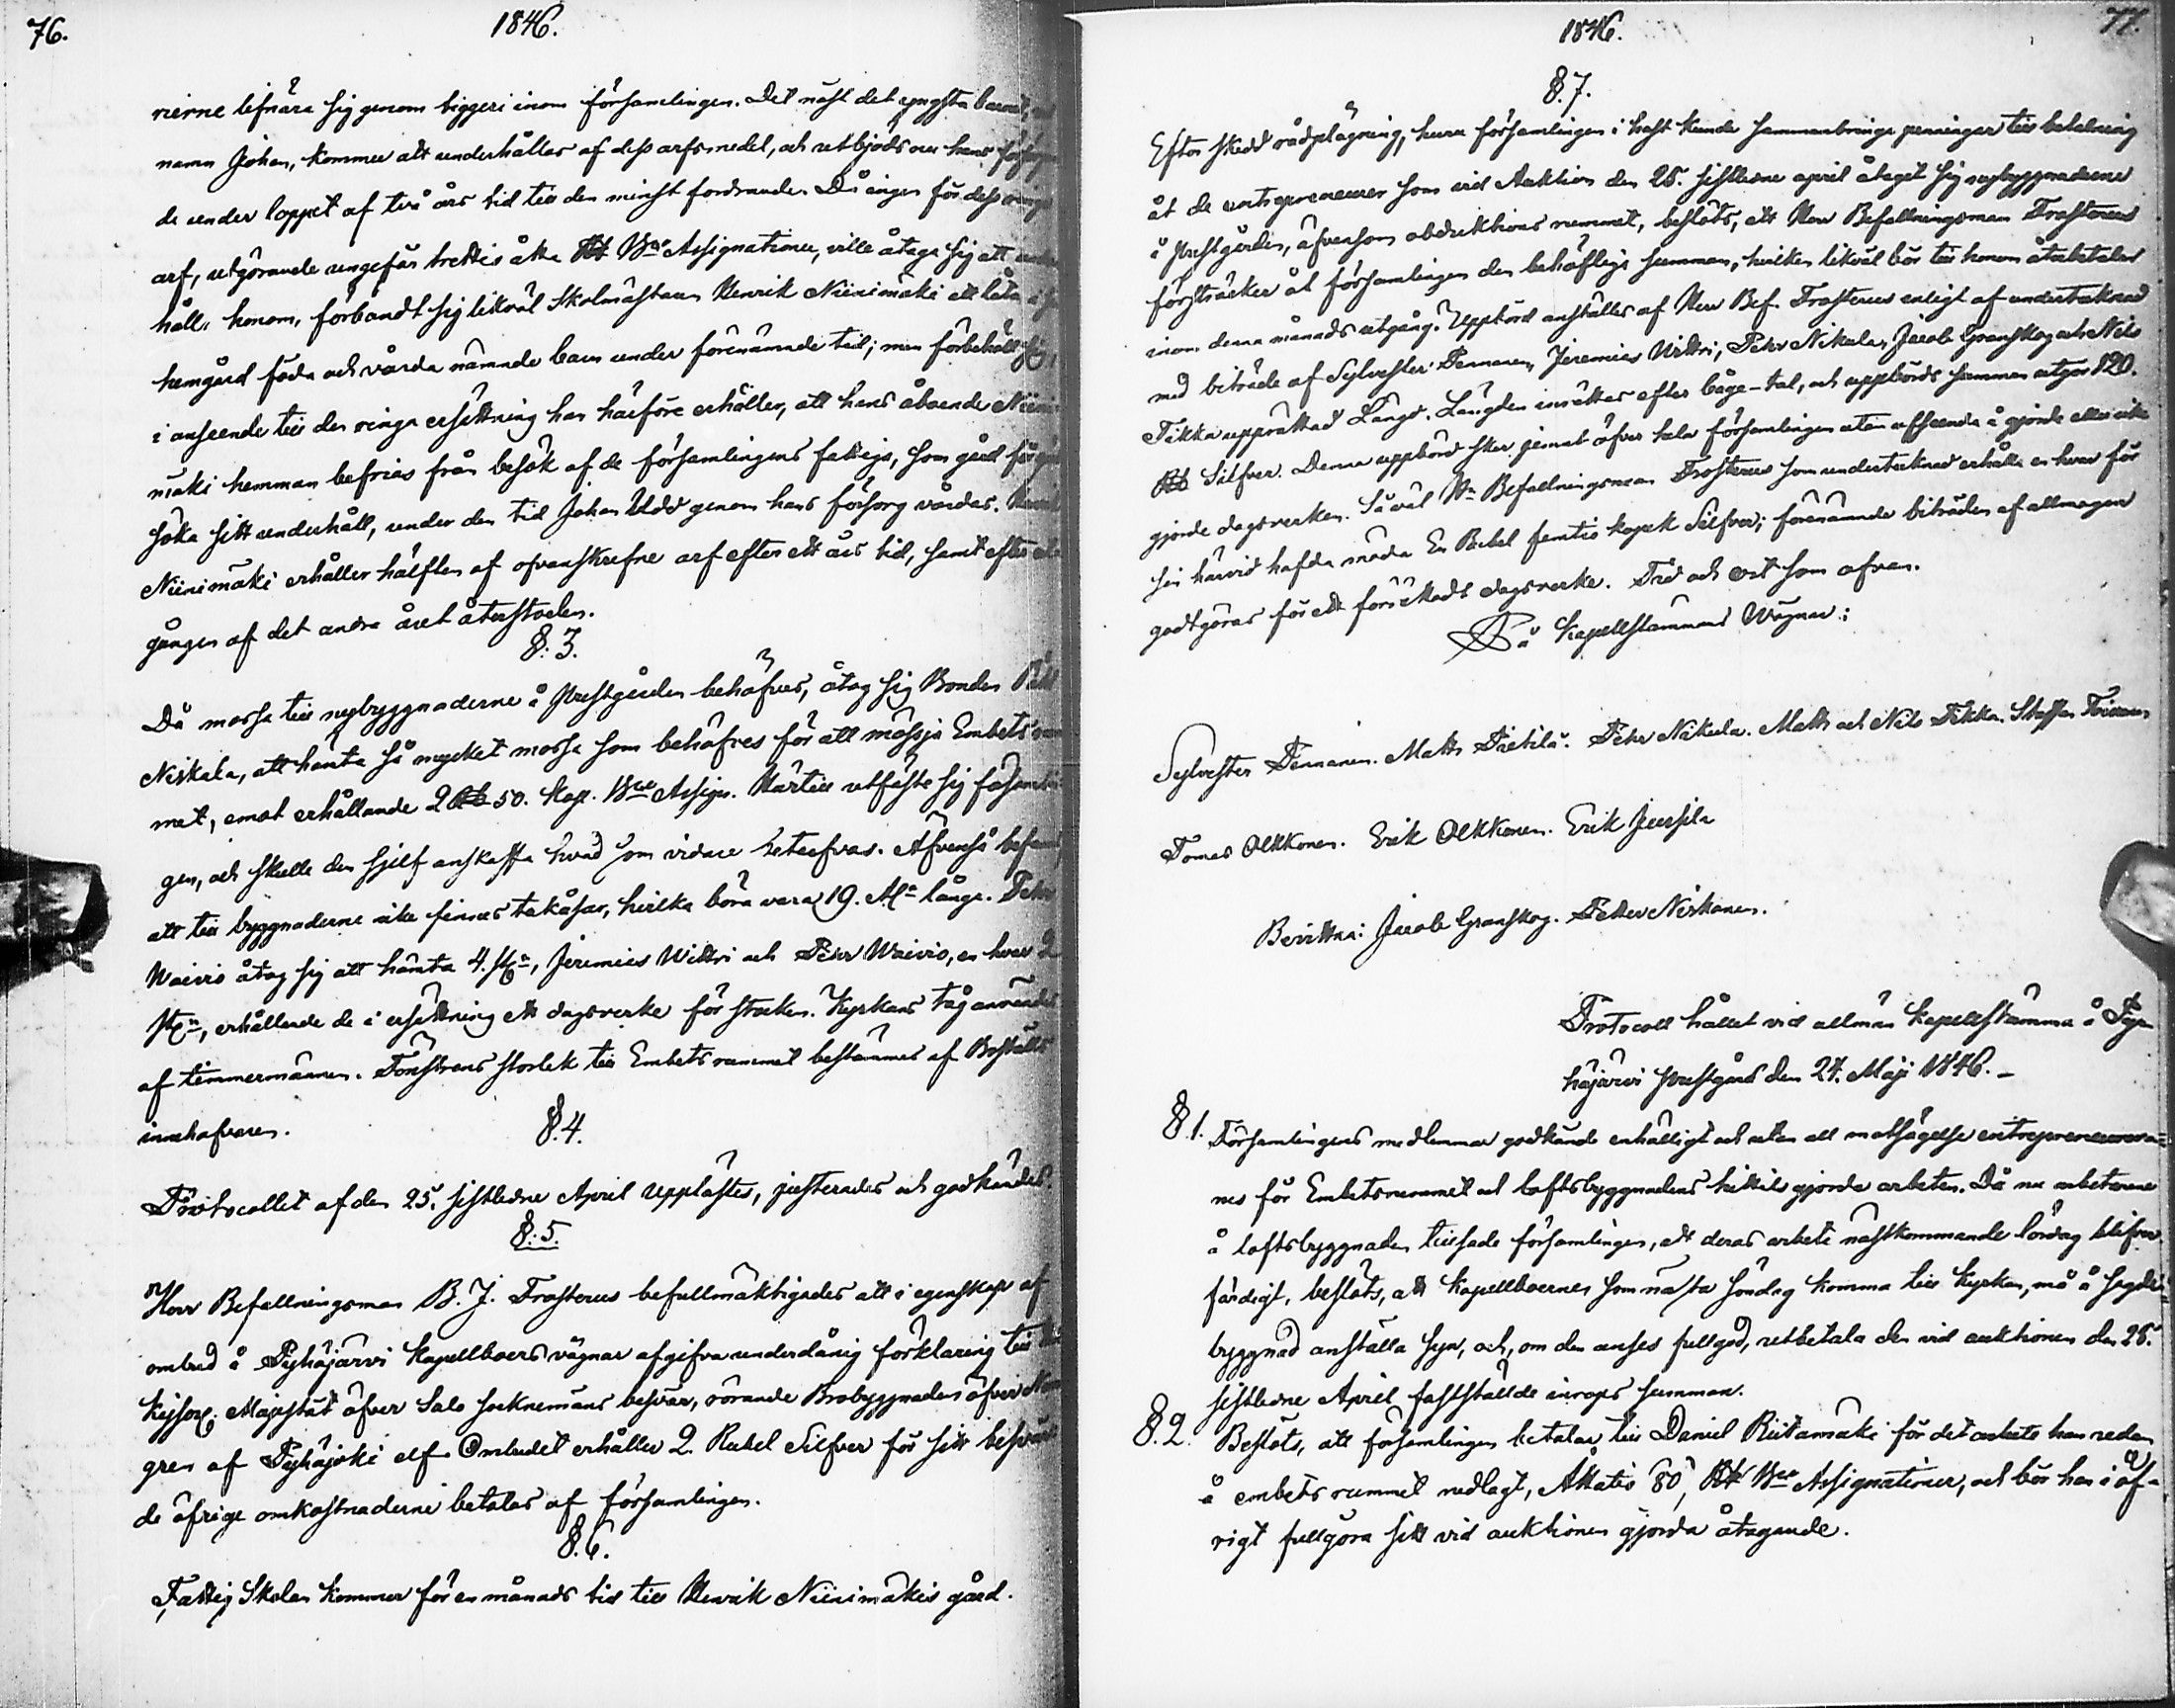 76.
1846.
rierne lifnära sig genom tiggeri inom församlingen. Det näst det yngsta barnet,
namn Johan, kommer att underhållas af dess arfsmedel, och utbjöds nu hans
de under loppet af två års tid till den minst fordrande. Då ingen för dess ringa
arf, utgörande ungefär trettio åtta Rbl Bco Assignationer, ville åtaga sig att under
håll. honom, förbandt sig likväl Skolmästaren Henrik Niinimäki att låta i
hemgård föda och vårda nämnde barn under förenämnde tid; men förbehöll sig,
i anseende till den ringa ersättning han härföre erhåller, att hans åboende Niini
mäki hemman befrias från besök af de församlingens fattiga, som gård från gård
söka sitt underhåll, under den tid Johan Udd genom hans försorg vårdas. Henrik
Niinimäki erhåller hälften af ofvanskrefne arf efter ett års tid, samt efter
gången af det andra året återstoden.
§. 3.
Då mossa till nybyggnaderne å Prestgården behöfves, åtog sig Bonden
Niskala, att hämta så mycket mossa som behöfves för att måssja Embets rum
met, emot erhållande 2 Rbl 50. Kop. Bco Assign. Härtill utfäste sig församlin
gen, och skulle den sjelf anskaffa hvad som vidare betarfvas. Äfvenså befanns
att till byggnaderne icke finnes takåsar, hvilka böra vara 19. Aln långa. Pehr
Waivio åtog sig att hämta 4. St., Jeremias Wittri och Pehr Waivio, en hvar 2
St., erhållande de i ersättning ett dagsverke för stocken. Kyrkans tåg användes
af timmermännen. Fönstrens storlek till Embetsrummet bestämmes af Boställs
innehafvaren.
§. 4.
Protocollet af den 25. sistledne April upplästes, justerades och godkändes.
§. 5.
Herr Befallningsman B. J. Frosterus befullmäktigades att i egenskap af
ombud å Pyhäjärvi Kapellboers vägnar afgifva underdånig förklaring till
Kejserl. Majestät öfver Salo socknemäns besvär, rörande Brobyggnaden öfver
gren af Pyhäjoki elf. Ombudet erhåller 2. Rubel Silfver för sitt besvär
de öfrige omkostnaderne betalas af församlingen.
§. 6.
Fattig Skolan kommer för en månads tid till Henrik Niinimäkis gård.
1846.
77.
§. 7.
Efter skedd rådplägning, huru församlingen i hast kunde sammanbringa penningar till betalning
åt de entrepreneurer som vid Auktion den 25. sistledne april åtagit sig nybyggnaderne
å Prestgården, äfvensom obduktions rummet, beslöts, att Herr Befallningsman Frosterus
försträcker åt församlingen den behöfliga summan, hvilken likväl bör till honom återbetalas
inom denna månads utgång. Uppbörd anställes af Herr Bef. Frosterus enligt af undertecknad
med biträde af Sylvester Tennanen, Jeremias Wittri, Pehr Nikula, Jacob Granskog och Nils
Tikka upprättad Längd. Längden inrättas efter båge-tal, och uppbörds summan utgör 120.
Rbl Silfver. Denna uppbörd sker jemnt öfver hela församlingen utan afseende å gjorde eller icke
gjorde dagsverken. Såväl Hr Befallningsman Frosterus som undertecknad erhålla en hvar för
sin härvid hafda möda En Rubel femtio kopek Silfver; förenämnde biträden af allmogen
godtgöras för ett försäkradt dagsverke. Tid och ort som ofvan.
På Kapellstämmans Wägnar:
Sylvester Tennanen. Matts Pietilä. Pehr Nikula. Matts och Nils Tikka. Staffan
Tomas Olkkonen. Erik Olkkonen. Erik Jusila
Bevittna: Jacob Granskog. Petter Niskanen.
Protocoll hållet vid allmän Kapellstämma å Py-
häjärvi Prestgård den 24. Maji 1846. –
§ 1. Församlingens medlemmar godkände enhälligt och utan all motsägelse entrepreneurer-
nes för Embetsrummet och loftsbyggnadens hittils gjorda arbeten. Då nu arbetarne
å loftsbyggnaden tillsade församlingen, att deras arbete nästkommande lördag blifver
färdigt, beslöts, att Kapellboerne som nästa söndag komma till Kyrkan, må å sagde
byggnad anställa syn, och, om den anses fullgod, utbetala den vid auktionen den 25.
sistledne April fastställde inrops summan.
§. 2. Beslöts, att församlingen betalar till Daniel Riitamäki för det arbete han redan
å embets rummet nedlagt, Åttatio 80, Rbl Bco Assignationer, och bör han i öf-
rigt fullgöra sitt vid auktionen gjorda åtagande.